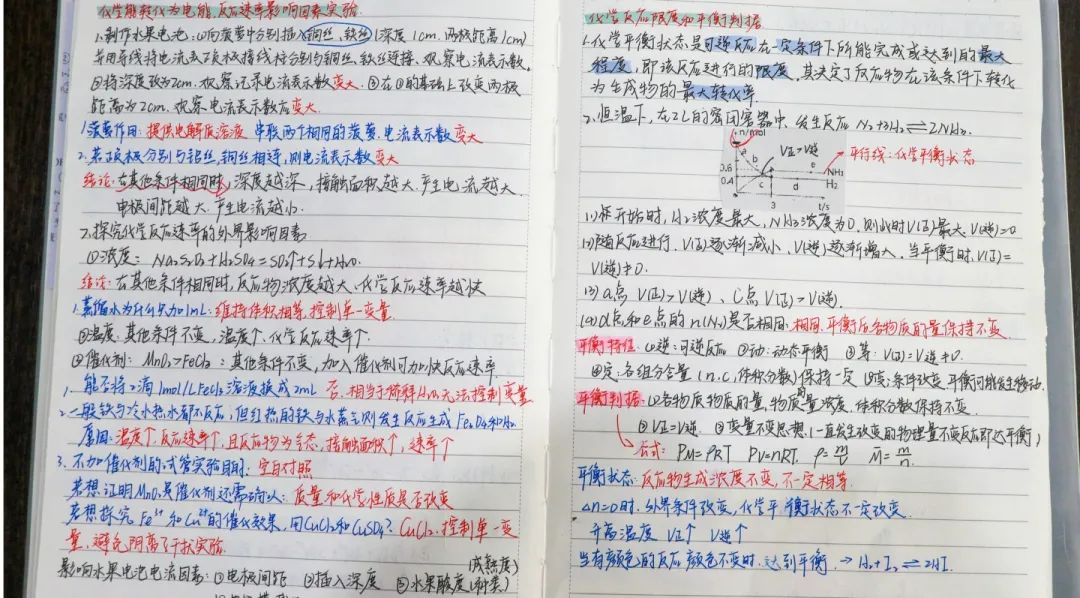 化学能转化为电能.反应速率影响因素实验
1.制作水果电池:①向菠萝中分别插入铜丝,铁丝(深度1cm.两极距离1cm)
并用导线将电流表两极接线柱分别与铜丝.铁丝连接.观察电流表示数.
②将深度改为2cm.观察记录电流表示数变大.③在①的基础上改变两极
距离为2cm.观察电流表示数应变大
1.菠萝作用:提供电解质溶液 串联两个相同的菠萝.电流表示数变大
2.若两极分别与铝丝,铜丝相连,则电流表示数变大
结论:在其他条件相同时,深度越深,接触面积越大.产生电流越大.
电极间距越大.产生电流越小.
2.探究化学反应速率的外界影响因素
①浓度: Na₂S₂O₃+H₂SO₄=SO₂↑+S↓+H₂O.
结论:在其他条件相同时,反应物浓度越大.化学反应速率越快
1.蒸馏水为什么只加1mL:维持体积相等,控制单一变量.
②温度:其他条件不变,温度↑.化学反应速率↑.
③催化剂: MnO₂>FeCl₃:其他条件不变,加入催化剂可加快反应速率
1. 能否将2滴1mol/LFeCl₃溶液换成2mL 否.相当于稀释H₂O₂无法控制变量
2.一般铁与冷水热水都不反应,但红热的铁与水蒸气则发生反应生成Fe₃O₄和H₂
原因:温度↑.反应速率↑,且反应物为气态,接触面积↑,速率↑
3.不加催化剂的试管实验目的:空白对照
若想证明MnO₂是催化剂还需确认:质量和化学性质是否改变
若想探究Fe³⁺和Cu²⁺的催化效果,用CuCl₂和CuSO₄? CuCl₂.控制单一变
量,避免阴离子干扰实验.
(成熟度)
影响水果电池电流因素:①电极间距 ②插入深度 ③水果酸度(种类)
化学反应限度和平衡判据
1.化学平衡状态是可逆反应在一定条件下所能完成或达到的最大
程度,即该反应进行的限度,其决定了反应物在该条件下转化
为生成物的最大转化率.
2.恒温下,在2L的密闭容器中.发生反应N₂+3H₂⇌2NH₃.
n/mol
V正>V逆
平行线:化学平衡状态
a
b
e
0.6
NH₃
0.4
c
d
H₂
3
t/s
(1)在开始时,H₂浓度最大,NH₃浓度为0,则此时V(正)最大.V(逆)=0
(2)随反应进行.V(正)逐渐减小.V(逆)逐渐增大.当平衡时.V(正)=
V(逆)≠0.
(3)a点V(正)>V(逆)、C点V(正)>V(逆).
(4)d点和e点的n(N₂)是否相同.相同.平衡后各物质的量保持不变
平衡特征:①逆:可逆反应 ②动:动态平衡 ③等:V(正)=V逆≠0.
④定:各组分含量(n.c.体积分数)保持一定 ⑤变:条件改变 平衡可能发生移动.
平衡判据:①各物质物质的量,物质的量浓度.体积分数保持不变
②V正=V逆. ③变量不变思想(一直发生改变的物理量不变反应即达平衡)
公式: PM=ρRT PV=nRT. ρ=m/V M=m/n.
平衡状态:反应物生成浓度不变,不一定相等.
△n=0时.外界条件改变,化学平衡状态不一定改变.
升高温度 V正↑ V逆↑
当有颜色的反应 颜色不变时.达到平衡.→H₂+I₂⇌2HI.